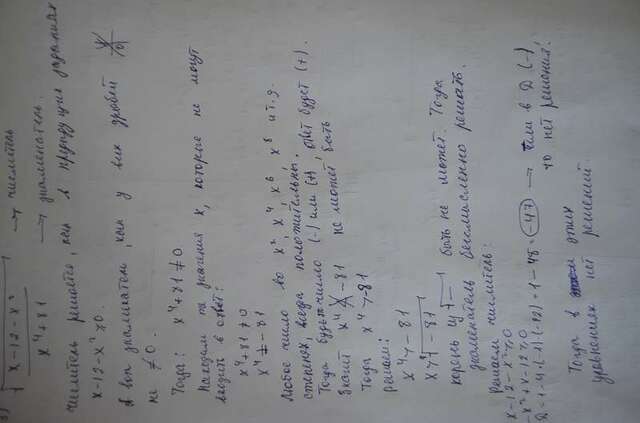 3) √ x-12-x² → числитель
x⁴+81 → знаменатель.
Числитель решается, как в предыдущих заданиях
x-12-x² ≥0.
А вот знаменатель, как у всех дробей
не ≠0.
Тогда: x⁴+81≠0
Находим те значения x, которые не могут
входить в ответ:
x⁴+81≠0
x⁴≠-81
Любое число во x², x⁴, x⁶, x⁸ и т.д.
степенях всегда положительны.
Тогда будь число (-) или (+), ответ будет (+).
Значит x⁴ -81 не может быть
Тогда x⁴ > -81
Решаем:
x⁴ > -81
x > ⁴√-81
корень ⁴√- быть не может. Тогда
знаменатель бессмысленно решать.
Решаем числитель:
x-12-x²≥0
-x²+x-12≥0
D=1-4·(-1)·(-12)=1-48=-47 → если в D (-),
то нет решения.
Тогда в этих
уравнениях нет решений.